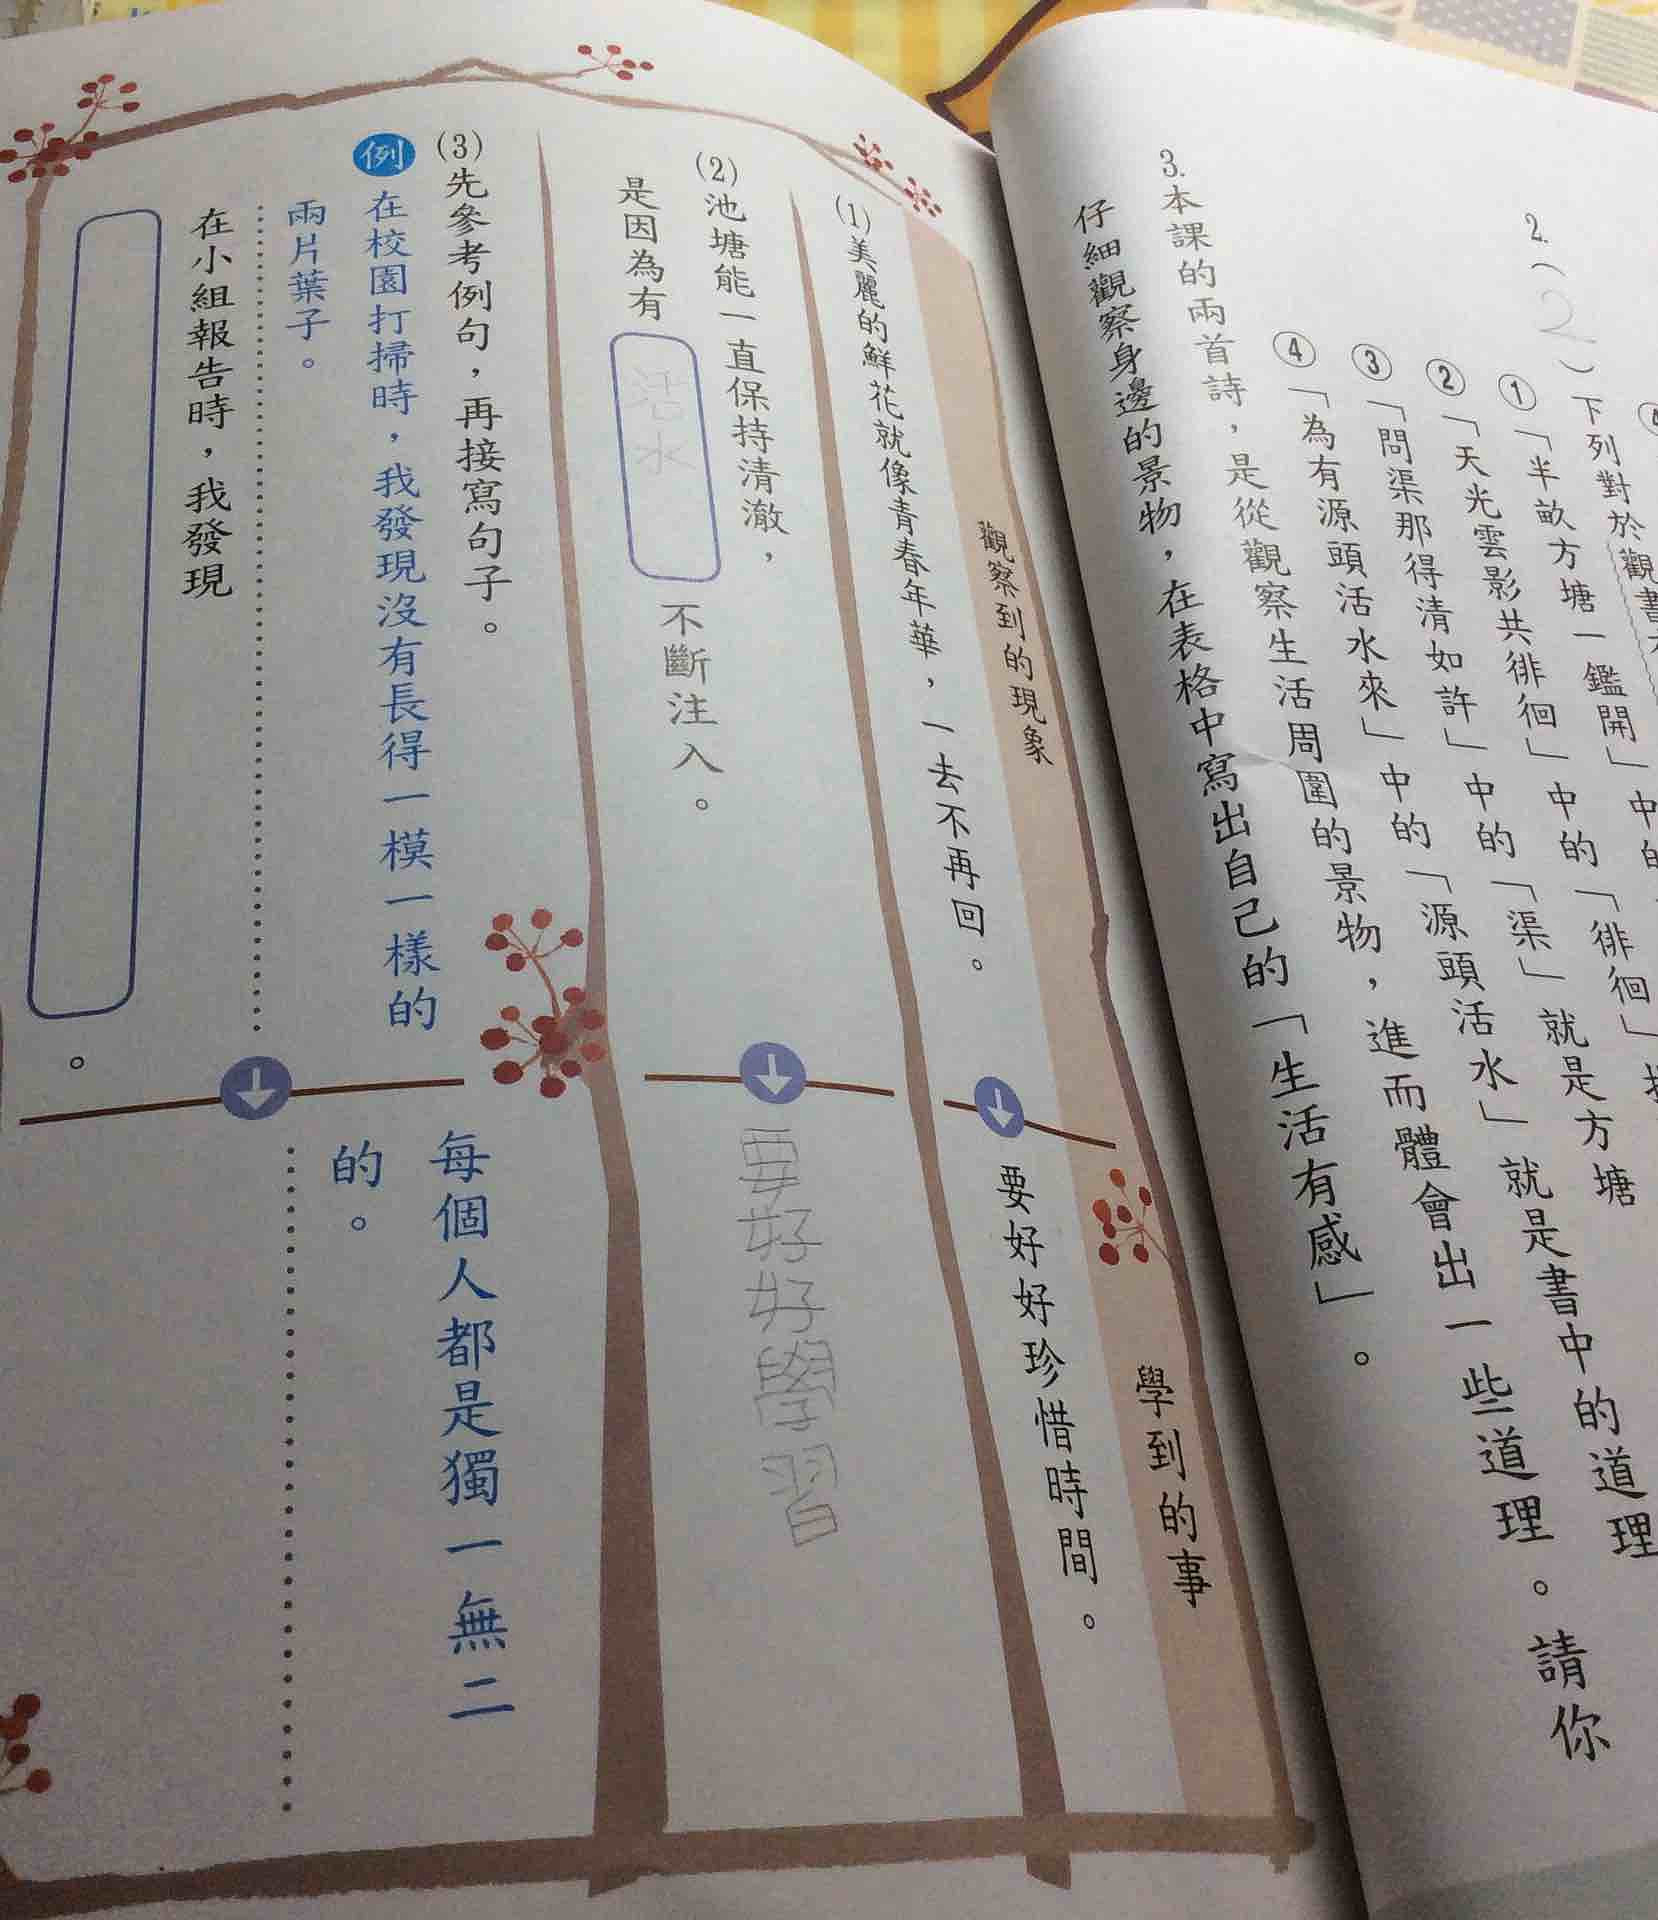 2.(2)下列對於觀書
①「半畝方塘一鑑開」中的「徘徊」
②「天光雲影共徘徊」中的「渠」就是方塘
③「問渠那得清如許」中的「源頭活水」就是書中的道理
④「為有源頭活水來」中的
3.本課的兩首詩，是從觀察生活周圍的景物，進而體會出一些道理。請你
仔細觀察身邊的景物，在表格中寫出自己的「生活有感」。
觀察到的現象
學到的事
(1)美麗的鮮花就像青春年華，一去不再回。
要好好珍惜時間。
(2)池塘能一直保持清澈，
是因為有 活水 不斷注入。
要好好學習
(3)先參考例句，再接寫句子。
例 在校園打掃時，我發現沒有長得一模一樣的
兩片葉子。
每個人都是獨一無二
的。
在小組報告時，我發現
。